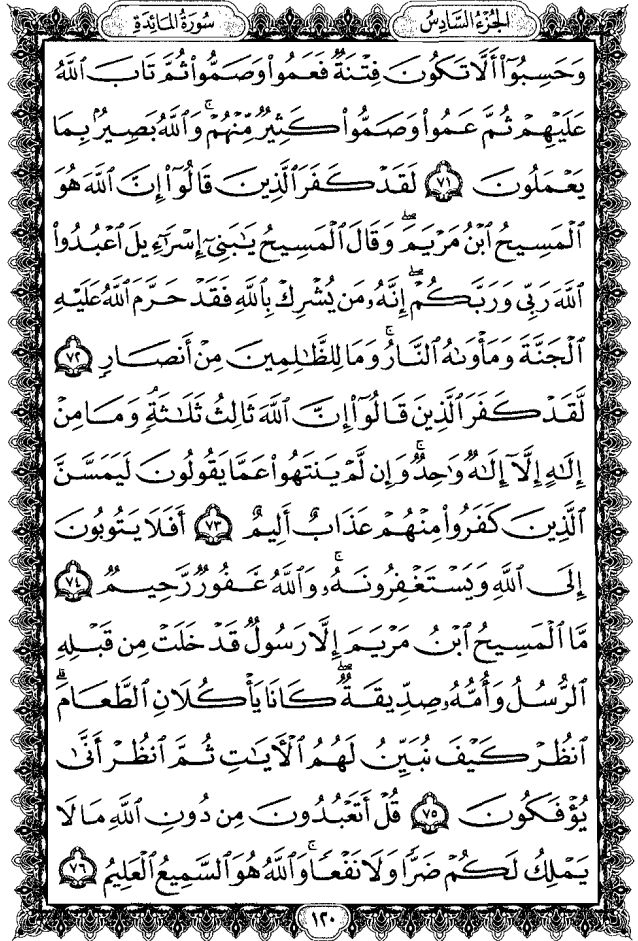 الجُزءُ السَّادِسُ
سُورَةُ المَائِدَةِ
وَحَسِبُوٓا۟ أَلَّا تَكُونَ فِتْنَةٌ فَعَمُوا۟ وَصَمُّوا۟ ثُمَّ تَابَ ٱللَّهُ
عَلَيْهِمْ ثُمَّ عَمُوا۟ وَصَمُّوا۟ كَثِيرٌ مِّنْهُمْ ۚ وَٱللَّهُ بَصِيرٌۢ بِمَا
يَعْمَلُونَ ٧١ لَقَدْ كَفَرَ ٱلَّذِينَ قَالُوٓا۟ إِنَّ ٱللَّهَ هُوَ
ٱلْمَسِيحُ ٱبْنُ مَرْيَمَ ۖ وَقَالَ ٱلْمَسِيحُ يَـٰبَنِىٓ إِسْرَٰٓءِيلَ ٱعْبُدُوا۟
ٱللَّهَ رَبِّى وَرَبَّكُمْ ۖ إِنَّهُۥ مَن يُشْرِكْ بِٱللَّهِ فَقَدْ حَرَّمَ ٱللَّهُ عَلَيْهِ
ٱلْجَنَّةَ وَمَأْوَىٰهُ ٱلنَّارُ ۖ وَمَا لِلظَّـٰلِمِينَ مِنْ أَنصَارٍ ٧٢
لَّقَدْ كَفَرَ ٱلَّذِينَ قَالُوٓا۟ إِنَّ ٱللَّهَ ثَالِثُ ثَلَـٰثَةٍ ۘ وَمَا مِنْ
إِلَـٰهٍ إِلَّآ إِلَـٰهٌ وَٰحِدٌ ۚ وَإِن لَّمْ يَنتَهُوا۟ عَمَّا يَقُولُونَ لَيَمَسَّنَّ
ٱلَّذِينَ كَفَرُوا۟ مِنْهُمْ عَذَابٌ أَلِيمٌ ٧٣ أَفَلَا يَتُوبُونَ
إِلَى ٱللَّهِ وَيَسْتَغْفِرُونَهُۥ ۚ وَٱللَّهُ غَفُورٌ رَّحِيمٌ ٧٤
مَّا ٱلْمَسِيحُ ٱبْنُ مَرْيَمَ إِلَّا رَسُولٌ قَدْ خَلَتْ مِن قَبْلِهِ
ٱلرُّسُلُ وَأُمُّهُۥ صِدِّيقَةٌ ۖ كَانَا يَأْكُلَانِ ٱلطَّعَامَ ۗ
ٱنظُرْ كَيْفَ نُبَيِّنُ لَهُمُ ٱلْـَٔايَـٰتِ ثُمَّ ٱنظُرْ أَنَّىٰ
يُؤْفَكُونَ ٧٥ قُلْ أَتَعْبُدُونَ مِن دُونِ ٱللَّهِ مَا لَا
يَمْلِكُ لَكُمْ ضَرًّا وَلَا نَفْعًا ۚ وَٱللَّهُ هُوَ ٱلسَّمِيعُ ٱلْعَلِيمُ ٧٦
١٢٠